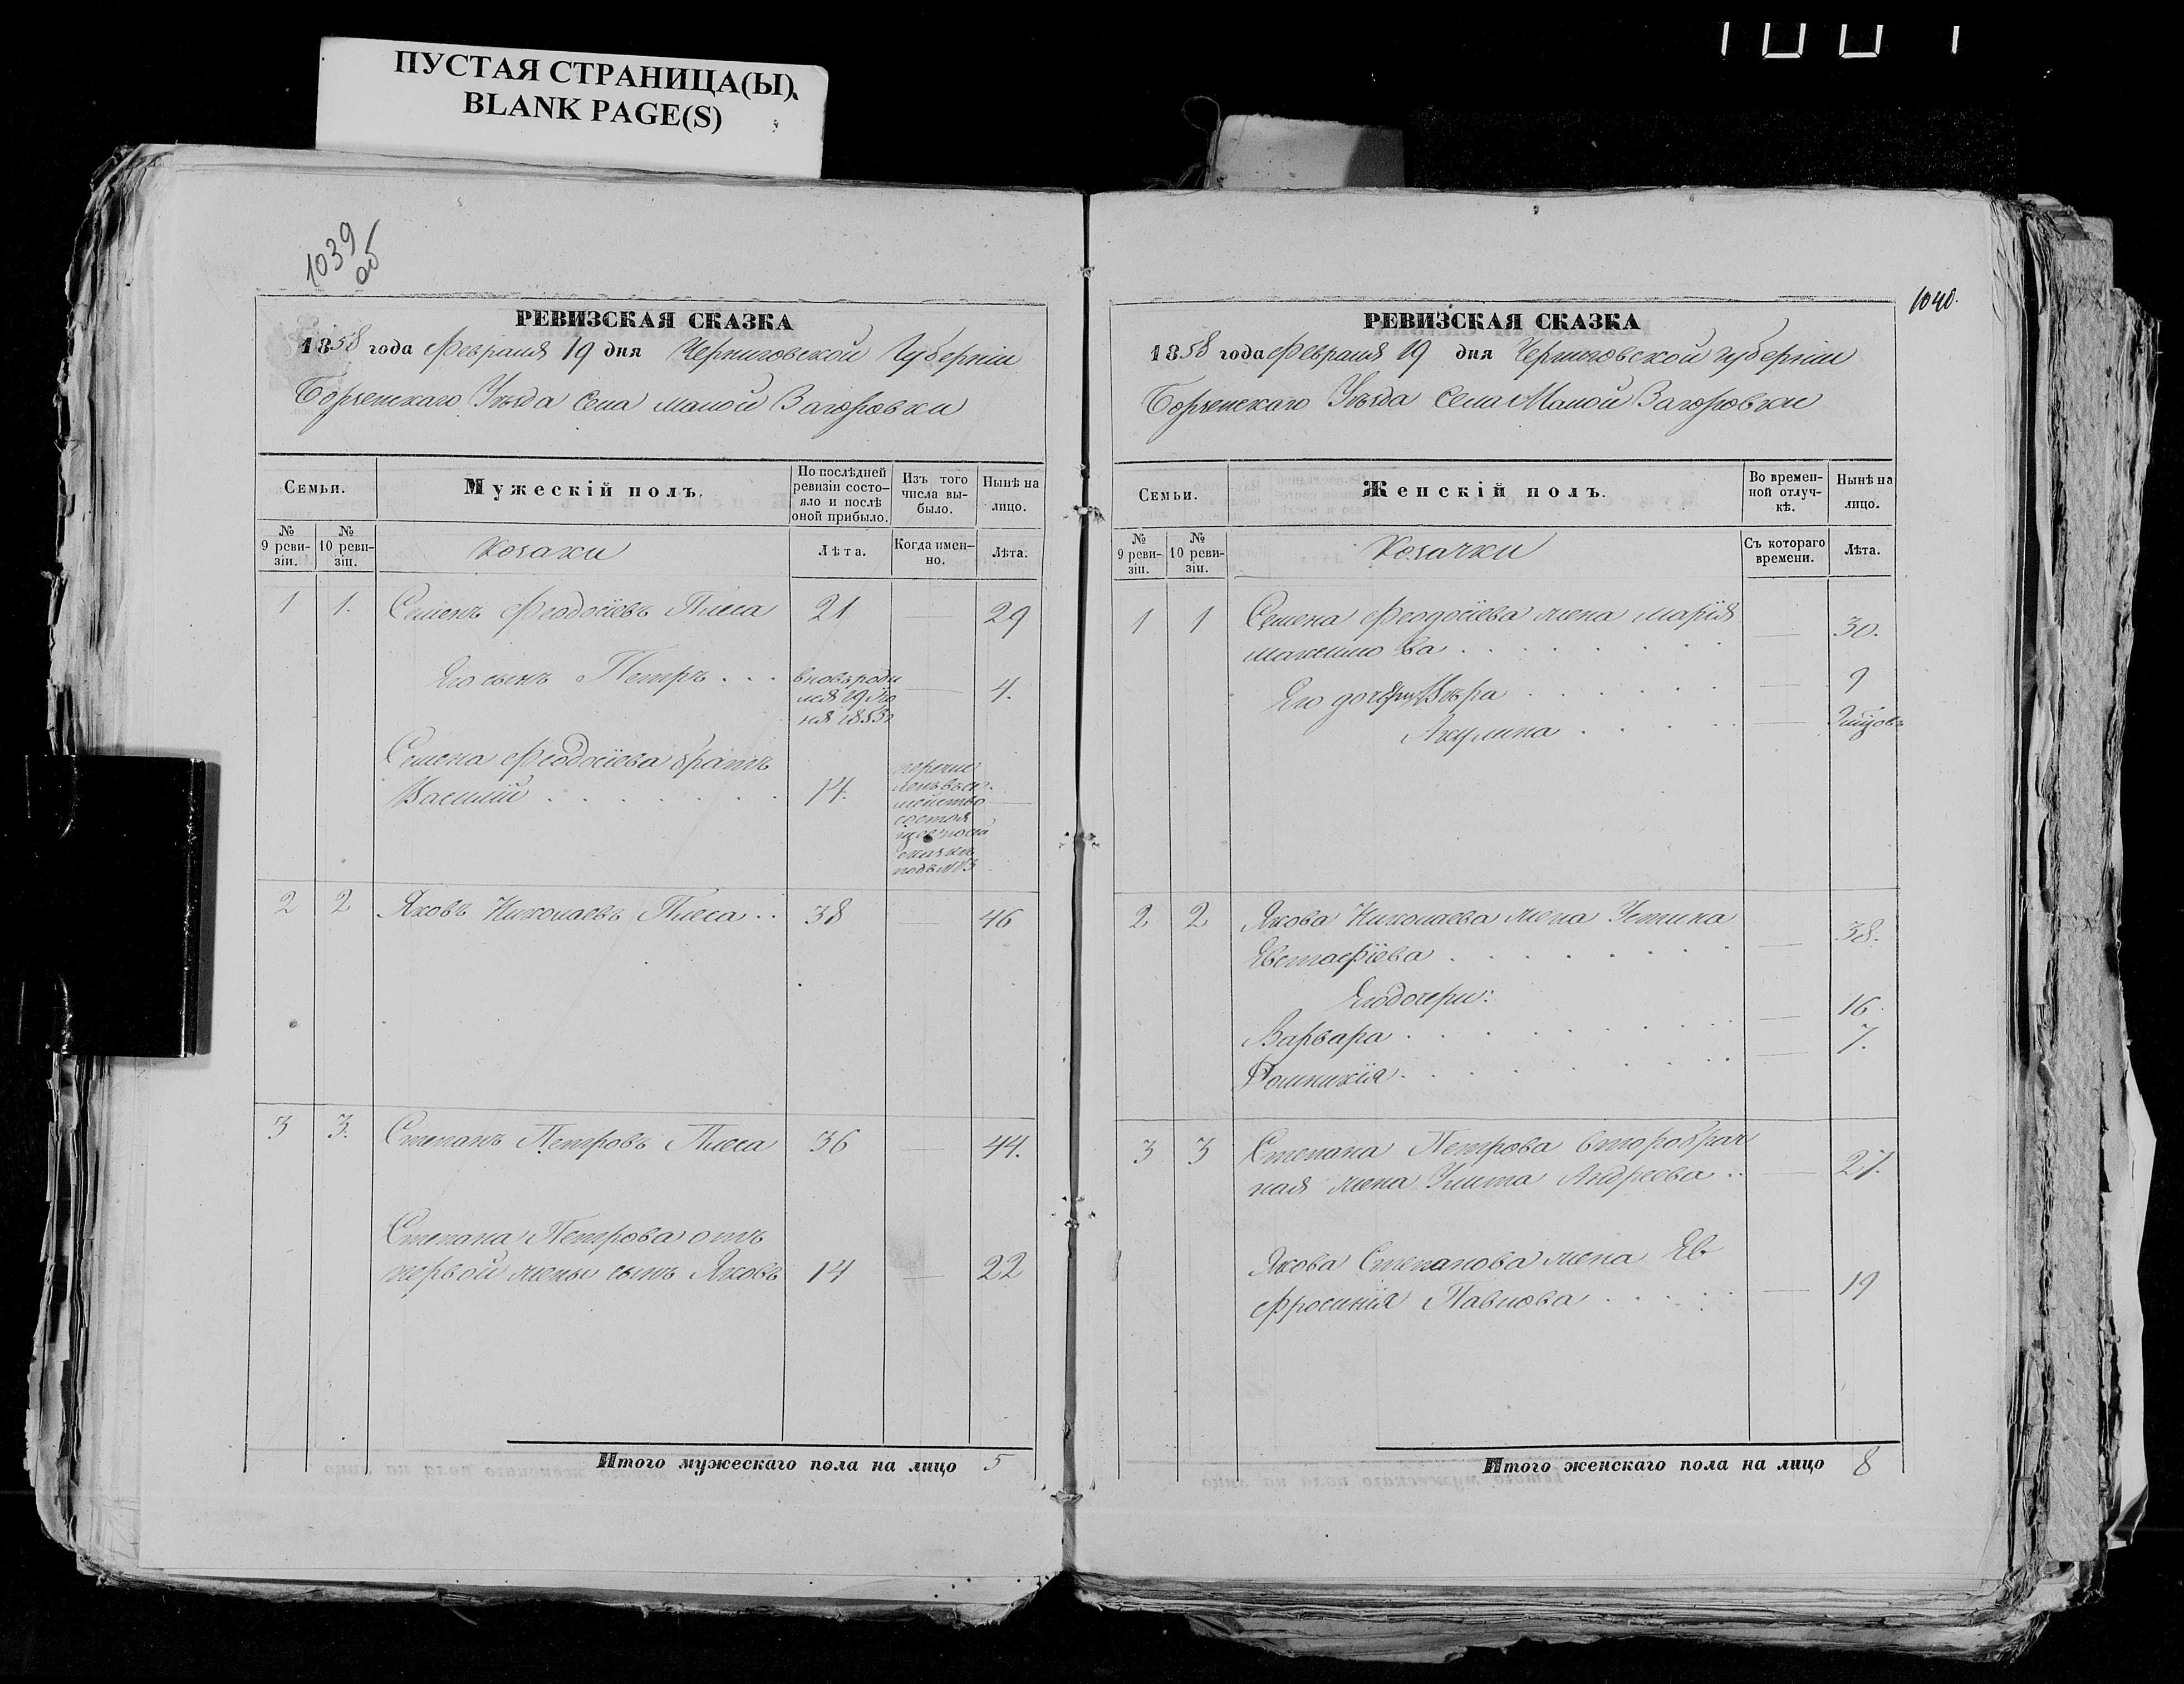 ПУСТАЯ СТРАНИЦА(Ы)
BLANK PAGE(S)
1039
об
РЕВИЗСКАЯ СКАЗКА
1858 года Февраля 19 дня Черниговской Губерніи
Борзенскаго Уѣзда Села Малой Загоровки
Семьи.
Мужескій полъ.
По послѣдней ревизіи состо-
яло и послѣ
оной прибыло.
Изъ того
числа вы-
было.
Нынѣ на
лицо.
№
9 реви-
зіи.
№
10 реви-
зіи.
Козаки
Лѣта.
Когда имен-
но.
Лѣта.
1 1. Семенъ Феодосіевъ Плеса 21 — 29
Его сынъ Петръ . . . вновь роди
лся 19 Ію
ня 1853 — 4.
Семена Феодосіева братъ
Василій . . . . . . . 14.
перечи
сленъ въ се-
мейство
состоя
щее по сей
сказкѣ
подъ №
2 2 Яковъ Николаевъ Плеса . . 38 — 46
3 3. Степанъ Петровъ Плеса 36 — 44.
Степана Петрова отъ
первой жены сынъ Яковъ 14 — 22
Итого мужескаго пола на лицо 5
1040.
РЕВИЗСКАЯ СКАЗКА
1858 года Февраля 19 дня Черниговской губерніи
Борзенскаго Уѣзда Села Малой Загоровки
Семьи.
Женскій полъ.
Во времен-
ной отлуч-
кѣ.
Нынѣ на
лицо.
№
9 реви-
зіи.
№
10 реви-
зіи.
Козачки
Съ котораго
времени.
Лѣта.
1 1 Семена Феодосіева жена Марія
Максимова . . . . . . . — 30.
Его дочери Вѣра . . . . . . — 9
Акулина . . . . —
2 2 Якова Николаева жена Устина
Евстафіева . . . . . . . — 38.
Его дочери:
Варвара . . . . . . . . — 16.
Соломикія . . . . . . . — 7.
3 3 Степана Петрова второбрач
ная жена Улита Андреева . . — 27.
Якова Степанова жена Ев
фросинія Павлова . . . . . — 19
Итого женскаго пола на лицо 8